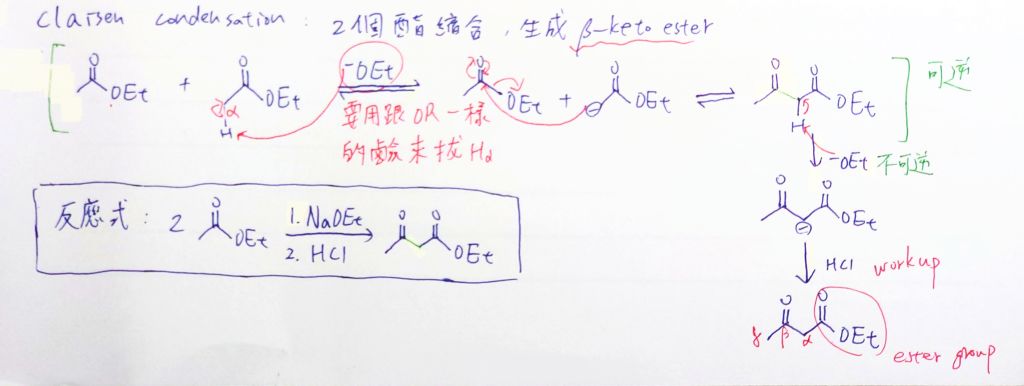 Claisen condensation : 2個酯縮合，生成 β-keto ester
O OEt + O OEt α H ⁻OEt O OEt + O OEt ⊖ ⇌ O O OEt H 可逆
要用跟OR一樣
的鹼來拔Hα
⁻OEt 不可逆
O O OEt ⊖
反應式： 2 O OEt 1. NaOEt 2. HCl O O OEt
HCl workup
O O OEt γ β α
ester group